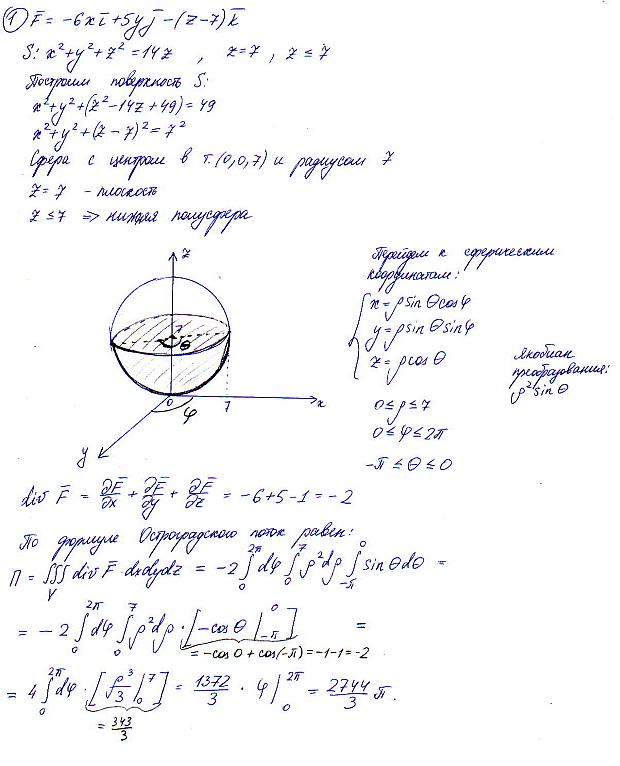 ① F̄ = -6x ī + 5y j̄ - (z-7) k̄
S: x² + y² + z² = 14z , z = 7 , z ≤ 7
Построим поверхность S:
x² + y² + (z² - 14z + 49) = 49
x² + y² + (z - 7)² = 7²
Сфера с центром в т. (0,0,7) и радиусом 7
z = 7 - плоскость
z ≤ 7 => нижняя полусфера
z
7
θ
0
φ
7
x
y
Перейдем к сферическим
координатам:
x = ρ sin θ cos φ
y = ρ sin θ sin φ
z = ρ cos θ
Якобиан
преобразования:
ρ² sin θ
0 ≤ ρ ≤ 7
0 ≤ φ ≤ 2π
-π ≤ θ ≤ 0
div F̄ = ∂F̄/∂x + ∂F̄/∂y + ∂F̄/∂z = -6 + 5 - 1 = -2
По формуле Остроградского поток равен:
П = ∭_V div F̄ · dxdydz = -2 ∫₀^{2π} dφ ∫₀^7 ρ² dρ ∫_{-π}^0 sin θ dθ =
= -2 ∫₀^{2π} dφ ∫₀^7 ρ² dρ · [-cos θ |_{-π}^0] =
= -cos 0 + cos(-π) = -1 - 1 = -2
= 4 ∫₀^{2π} dφ · [ρ³/3 |₀^7] = 1372/3 · φ |₀^{2π} = 2744/3 π.
= 343/3